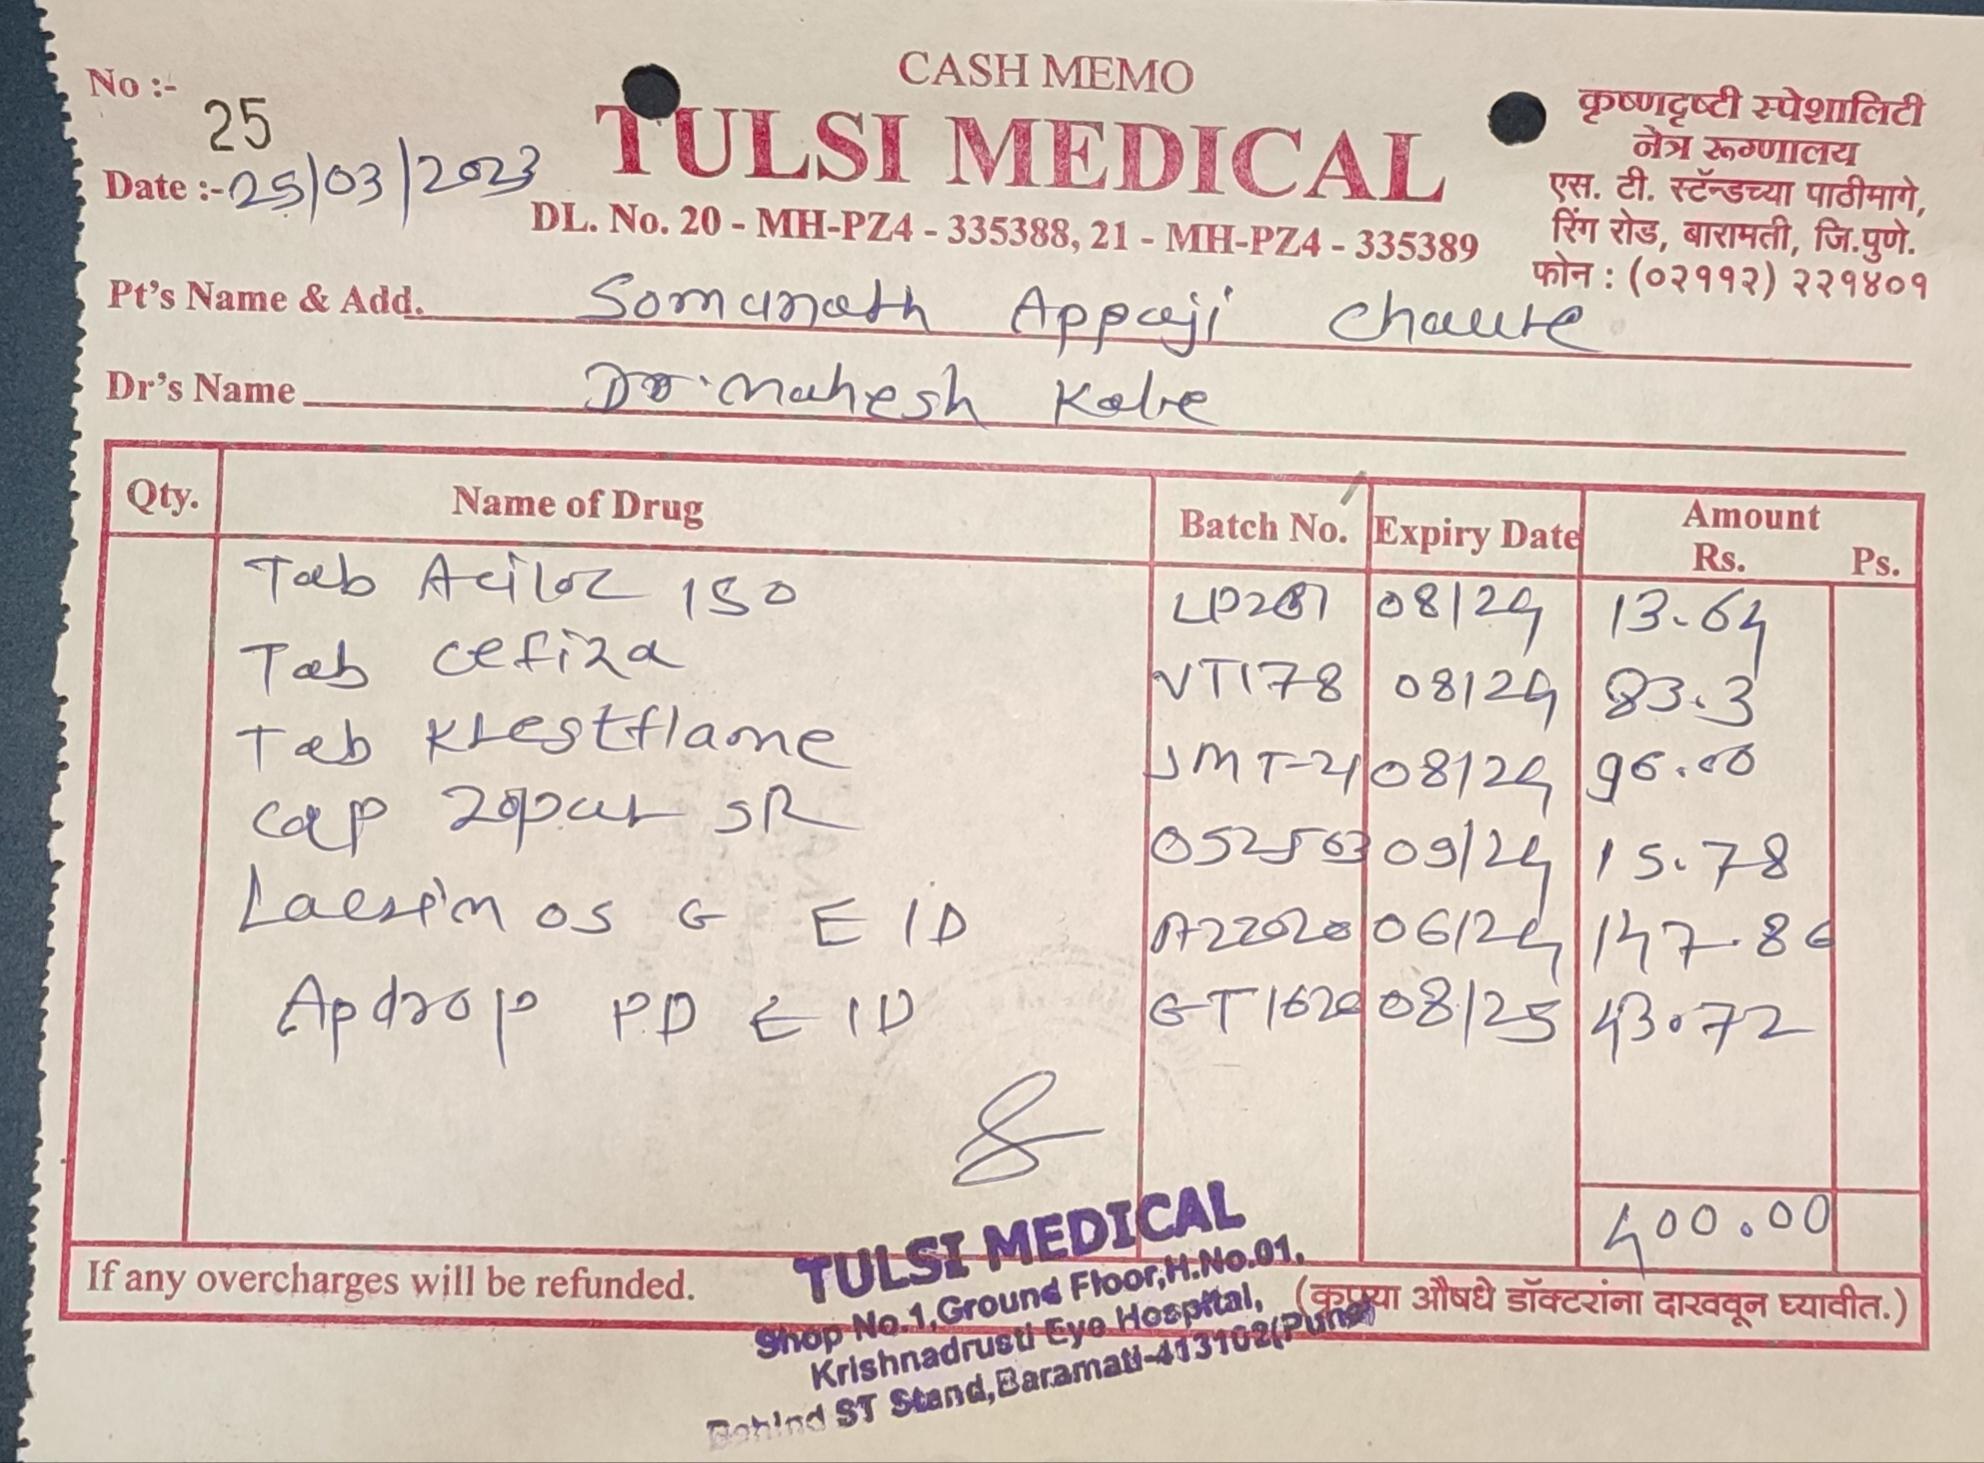 CASH MEMO
No :- 25
TULSI MEDICAL
Date :- 25/03/2023
DL. No. 20 - MH-PZ4 - 335388, 21 - MH-PZ4 - 335389
कृष्णदृष्टी स्पेशालिटी
नेत्र रूग्णालय
एस. टी. स्टॅन्डच्या पाठीमागे,
रिंग रोड, बारामती, जि.पुणे.
फोन : (०२११२) २२१४०१
Pt's Name & Add. Somanath Appaji
Dr's Name Dr. Mahesh
Qty. Name of Drug Batch No. Expiry Date Amount Rs. Ps.
Tab Aciloc 150 08/24 13.64
Tab cefiza VT178 08/24 83.3
Tab Krestflame 08/24 96.00
cap SR 09/24 15.78
OS G E ID 06/24 147.86
Apdrop PD E ID 08/25 43.72
400.00
If any overcharges will be refunded.
(कृपया औषधे डॉक्टरांना दाखवून घ्यावीत.)
TULSI MEDICAL
Shop No.1,Ground Floor,H.No.01,
Krishnadrusti Eye Hospital,
Behind ST Stand,Baramati-413102(Pune)